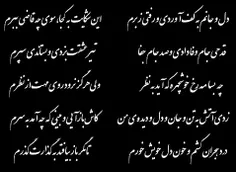 دل و جانم به کف آوردی و رفتی ز برم
این شکایت به کجا، سوی چه قاضی ببرم
قدحی جام وفا دادی و صد جام جفا
تیر عشقت بزدی و بستاندی سپرم
چه بسا مه رخ خوشچهره که آید به نظر
ولی هرگز نرود روی مهت از نظرم
زدی آتش به تن و جان و دل و دیده‌ی من
کاش باز آیی و بینی که چه آمد به سرم
در هجران کشم و خون دل خویش خورم
تا مگر باز بیافتد به کنارت گذرم